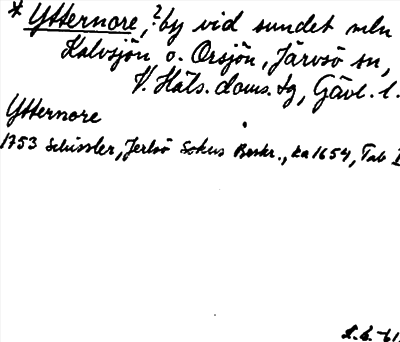 * Ytternore, ? by vid sundet mln
Kalvsjön o. Orsjön, Järvsö sn,
V. Häls. doms. tg, Gävl. l.
Ytternore
1753 Schissler, Jerfsö Sokns Beskr., ka 1654, Tab I